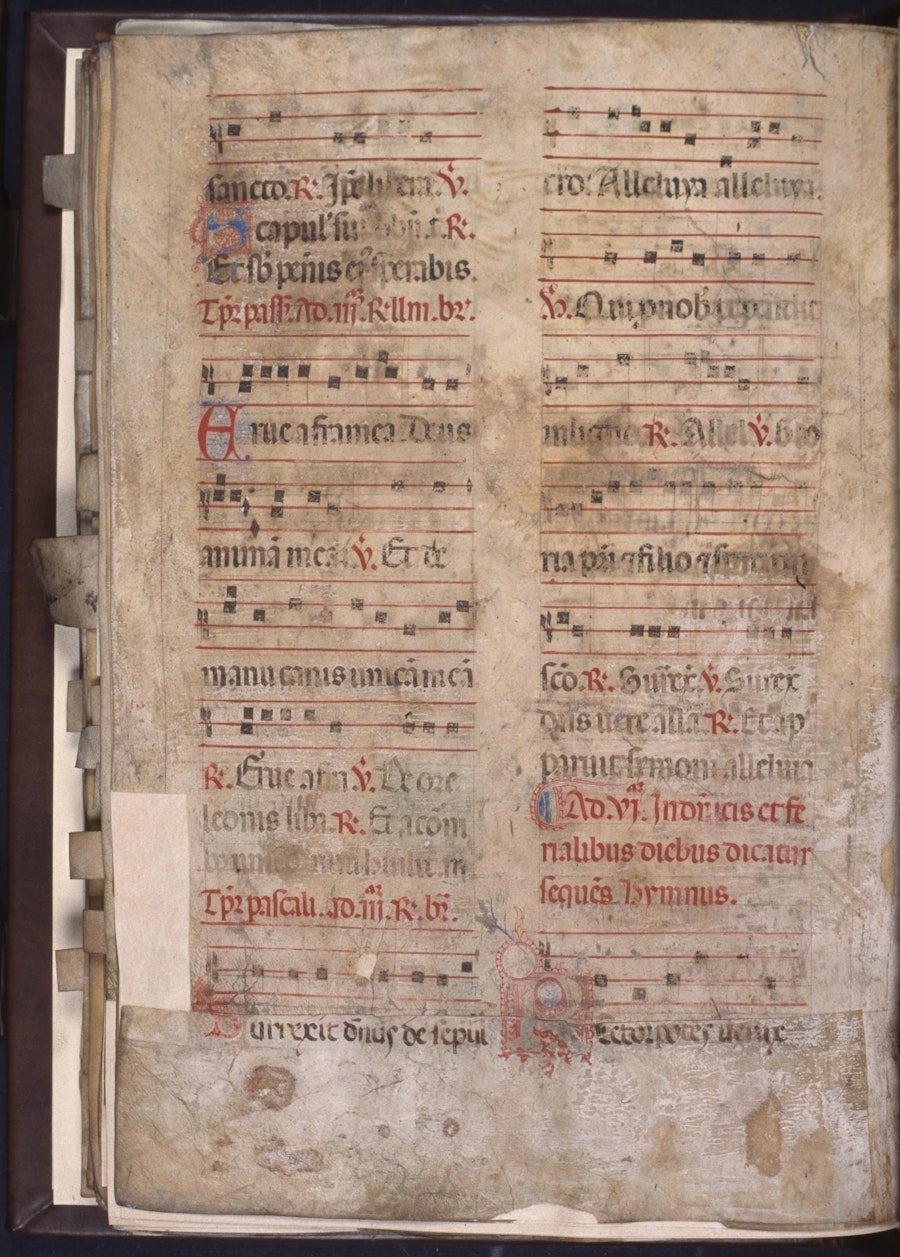 sancto. R. Ipe libera. V.
Scapul' su obū. t. R.
Et sb penis ei sperabis.
Tpr pass. Ad. iij. R. llm. br.
Erue a framea Deus
animā meā. V. Et de
manu canis unicā meā
R. Erue a fra V. De ore
leonis liba R. Et a corni
Tpr pascali. ad. iij. R. br.
Surrexit dnus de sepul
cro. Alleluya alleluya.
V. Qui p nob
R. Allel V. Glo
ria pri & filio & spiritui
sco. R. Surrex. V. Surrex
dns uere alla R. Et ap
paruit simoni alleluia
Ad. vj. In dnicis et fe
rialibus diebus dicatur
sequēs Hymnus.
Rector potes uerax